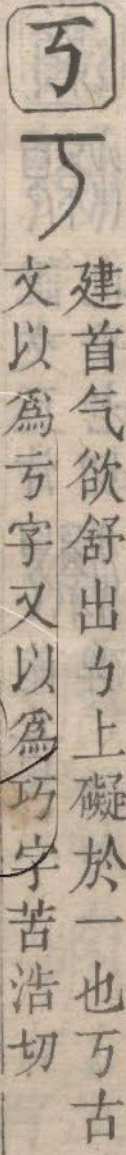 丂
丂
建首气欲舒出㇉上礙於一也丂古
文以為亏字又以為巧字苦浩切